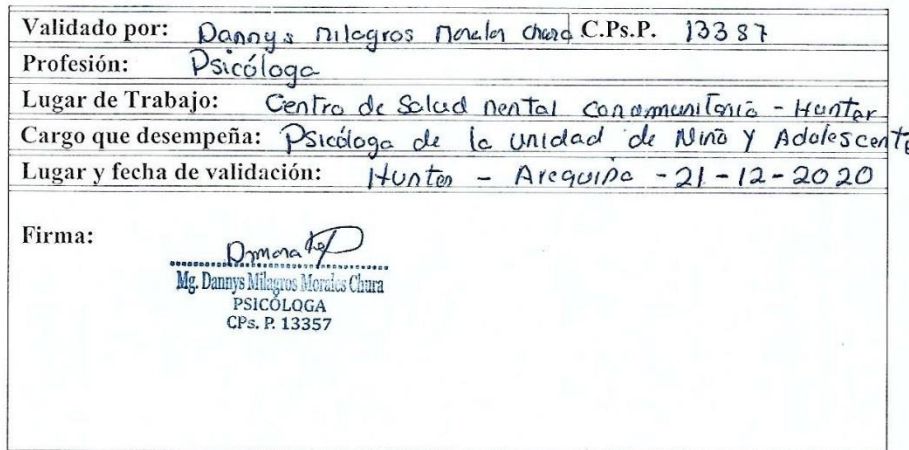 Validado por: Dannys Milagros Morales Chura C.Ps.P. 13387
Profesión: Psicóloga
Lugar de Trabajo: Centro de Salud Mental Hunter
Cargo que desempeña: Psicóloga de la unidad de Niño y Adolescente
Lugar y fecha de validación: Hunter - Arequipa - 21-12-2020
Firma:
Mg. Dannys Milagros Morales Chura
PSICÓLOGA
CPs. P. 13357